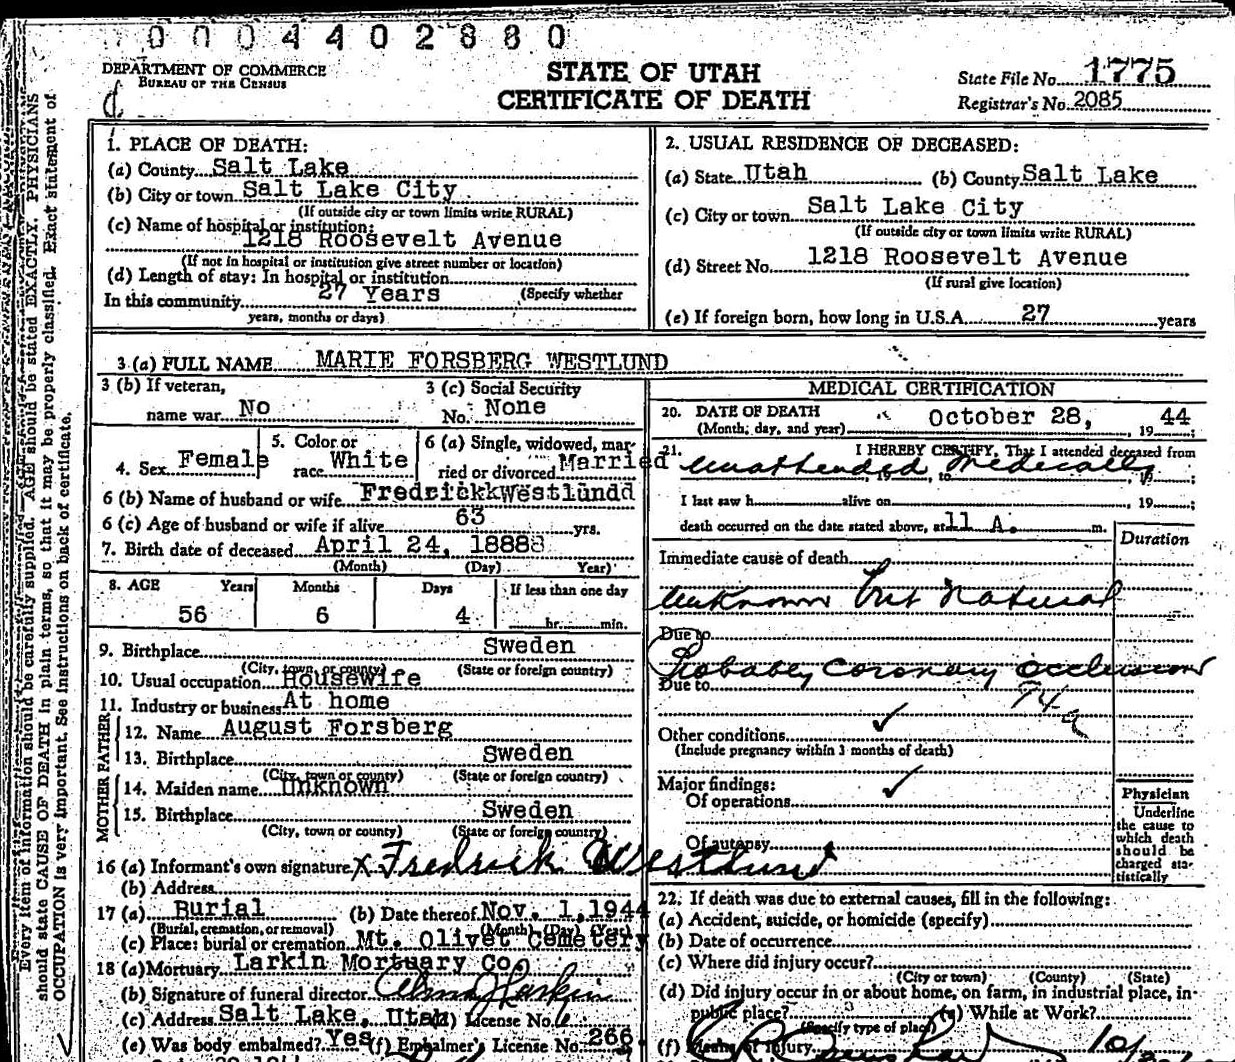 0004402880
DEPARTMENT OF COMMERCE
BUREAU OF THE CENSUS
STATE OF UTAH
CERTIFICATE OF DEATH
State File No. 1775
Registrar's No. 2085
Every item of information should be carefully supplied. AGE should be stated EXACTLY. PHYSICIANS
should state CAUSE OF DEATH in plain terms, so that it may be properly classified. Exact statement of
OCCUPATION is very important. See instructions on back of certificate.
1. PLACE OF DEATH:
(a) County Salt Lake
(b) City or town Salt Lake City
(If outside city or town limits write RURAL)
(c) Name of hospital or institution:
1218 Roosevelt Avenue
(If not in hospital or institution give street number or location)
(d) Length of stay: In hospital or institution
In this community 27 Years (Specify whether
years, months or days)
2. USUAL RESIDENCE OF DECEASED:
(a) State Utah (b) County Salt Lake
(c) City or town Salt Lake City
(If outside city or town limits write RURAL)
(d) Street No. 1218 Roosevelt Avenue
(If rural give location)
(e) If foreign born, how long in U.S.A. 27 years
3 (a) FULL NAME MARIE FORSBERG WESTLUND
3 (b) If veteran,
name war No
3 (c) Social Security
No. None
4. Sex Female
5. Color or
race White
6 (a) Single, widowed, mar-
ried or divorced Married
6 (b) Name of husband or wife Fredrickk Westlundd
6 (c) Age of husband or wife if alive 63 yrs.
7. Birth date of deceased April 24, 18888
(Month) (Day) Year)
8. AGE Years Months Days If less than one day
56 6 4 hr. min.
9. Birthplace Sweden
(City, town, or county) (State or foreign country)
10. Usual occupation Housewife
11. Industry or business At home
FATHER
12. Name August Forsberg
13. Birthplace Sweden
(City, town or county) (State or foreign country)
MOTHER
14. Maiden name Unknown
15. Birthplace Sweden
(City, town or county) (State or foreign country)
16 (a) Informant's own signature X Fredrick Westlund
(b) Address
17 (a) Burial (b) Date thereof Nov. 1, 1944
(Burial, cremation, or removal) (Month) (Day) (Year)
(c) Place: burial or cremation Mt. Olivet Cemetery
18 (a) Mortuary Larkin Mortuary Co.
(b) Signature of funeral director Alma Larkin
(c) Address Salt Lake, Utah (d) License No.
(e) Was body embalmed? Yes (f) Embalmer's License No. 266
MEDICAL CERTIFICATION
20. DATE OF DEATH
(Month, day, and year) October 28, 19 44;
21. I HEREBY CERTIFY, That I attended deceased from
Unattended Medically
, 19 , to , 19 ;
I last saw h alive on , 19 ;
death occurred on the date stated above, at 11 A. m.
Duration
Immediate cause of death
Unknown but Natural
Due to
Probably coronary occlusion
Due to
94 a
Other conditions ✓
(Include pregnancy within 3 months of death)
Major findings:
Of operations ✓
Of autopsy
Physician
Underline
the cause to
which death
should be
charged sta-
tistically
22. If death was due to external causes, fill in the following:
(a) Accident, suicide, or homicide (specify)
(b) Date of occurrence
(c) Where did injury occur?
(City or town) (County) (State)
(d) Did injury occur in or about home, on farm, in industrial place, in
public place? (e) While at Work?
(Specify type of place)
(f) Means of injury